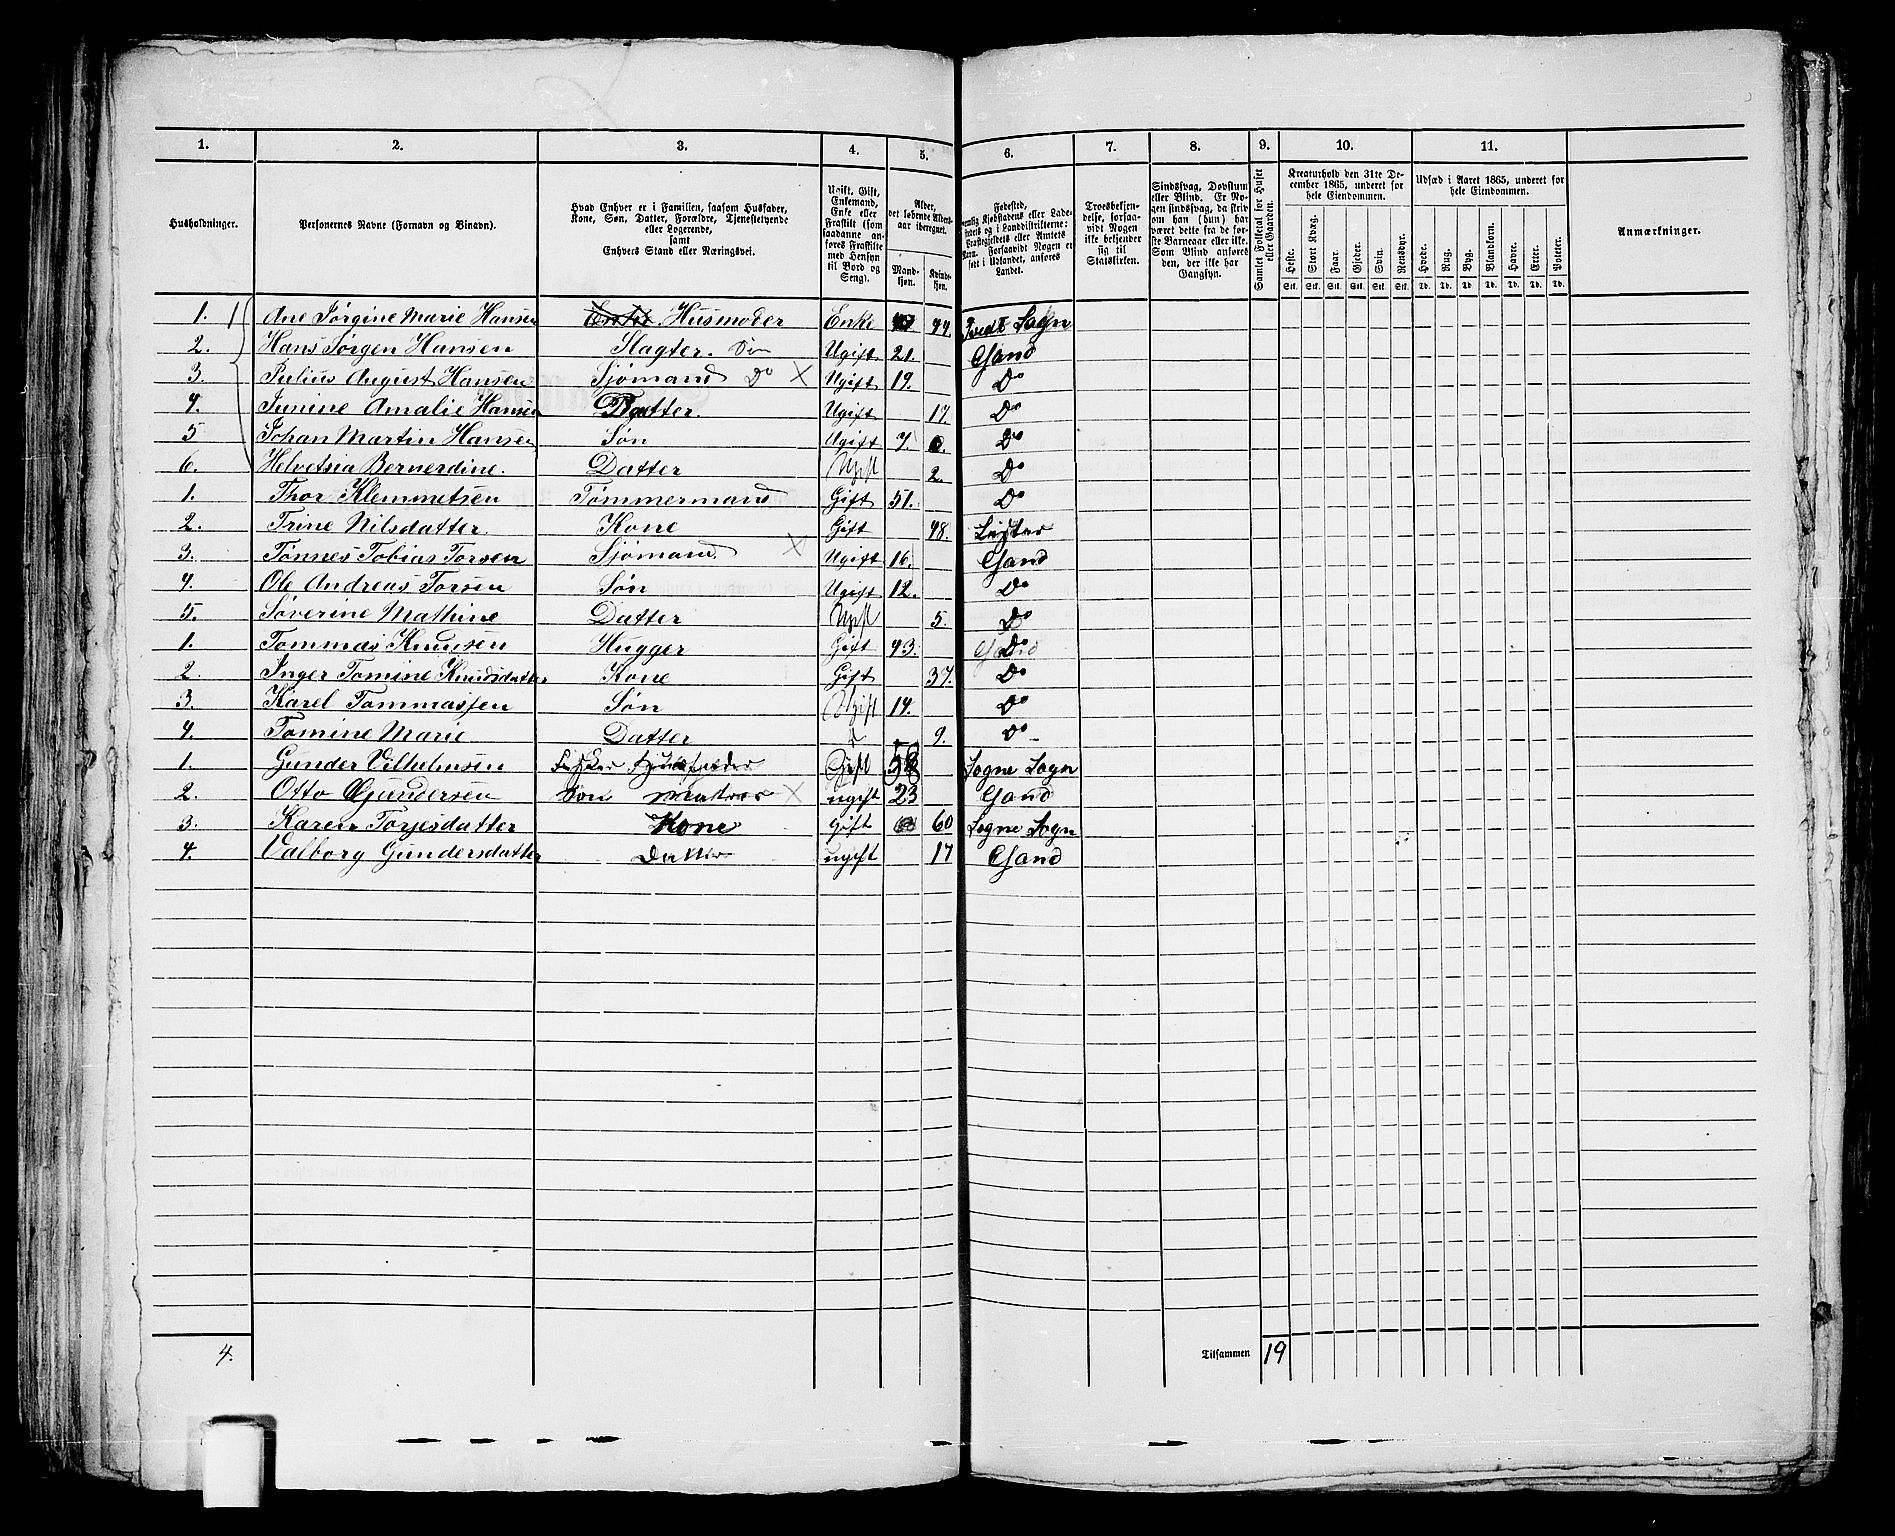 1. 2. 3. 4. 5. 6. 7. 8. 9. 10. 11.
Husholdninger.
Personernes Navne (Fornavn og Binavn).
Hvad Enhver er i Familien, saasom Husfader, Kone, Søn, Datter, Forældre, Tjenestetyende eller Logerende, samt Enhvers Stand eller Næringsvei.
Ugift, Gift, Enkemand, Enke eller Fraskilt (som saadanne anføres Fraskilte med Hensyn til Bord og Seng).
Alder, det løbende Alders-aar iberegnet.
Mand-kjøn. Kvinde-kjøn.
Fødested,
Kjøbstadens eller Lade-stedets og i Landdistrikterne: Præstegjeldets eller Amtets Navn. Forsaavidt Nogen er født i Udlandet, anføres Landet.
Troesbekjen-delse, forsaa-vidt Nogen ikke bekjender sig til Statskirken.
Sindssvag, Døvstum eller Blind. Er No-gen sindssvag, da skriv om han (hun) har været dette fra de før-ste Barneaar eller ikke. Som Blind anføres den, der ikke har Gangsyn.
Samlet Folketal for Huset eller Gaarden.
Kreaturhold den 31te De-cember 1865, underet for hele Eiendommen.
Heste. Stort Kvæg. Faar. Gjeder. Svin. Rensdyr.
Stk. Stk. Stk. Stk. Stk. Stk.
Udsæd i Aaret 1865, underet for hele Eiendommen.
Hvede. Rug. Byg. Blandkorn. Havre. Erter. Poteter.
Td. Td. Td. Td. Td. Td. Td.
Anmærkninger.
1. Ane Jørgine Marie Hansen Enke. Husmoder Enke 44. Tvedt Sogn
2. Hans Jørgen Hansen Slagter. Søn Ugift 21. Chand
3. Julius August Hansen Sjømand Do X Ugift 19. Do
4. Junine Amalie Hansen Datter. Ugift 17. Do
5 Johan Martin Hansen Søn Ugift 7. Do
6. Helvetsia Bernerdine. Datter Ugift 2. Do
1. Thor Klemmetsen Tømmermand Gift 51. Do
2. Trine Nilsdatter Kone Gift 48. Lister
3. Tønnes Tobias Torsen Sjømand X Ugift 16. Chand
4. Ole Andreas Torsen Søn Ugift 12. Do
5. Søverine Mathine Datter Ugift 5. Do
1. Tommas Knudsen Hugger Gift 43. Do
2. Inger Tomine Knudsdatter Kone Gift 37. Do
3. Karel Tommassen Søn Ugift 14. Do
4. Tomine Marie Datter 9. Do
1. Gunder Vilhelmsen Fisker Husfader Gift 58 Sogne Sogn
2. Otto Gundersen Søn Matros X ugift 23 Chand
3. Karen Torjesdatter Kone Gift 60 Sogne Sogn
4. Valborg Gundersdatter Datter ugift 17 Chand
4. Tilsammen 19